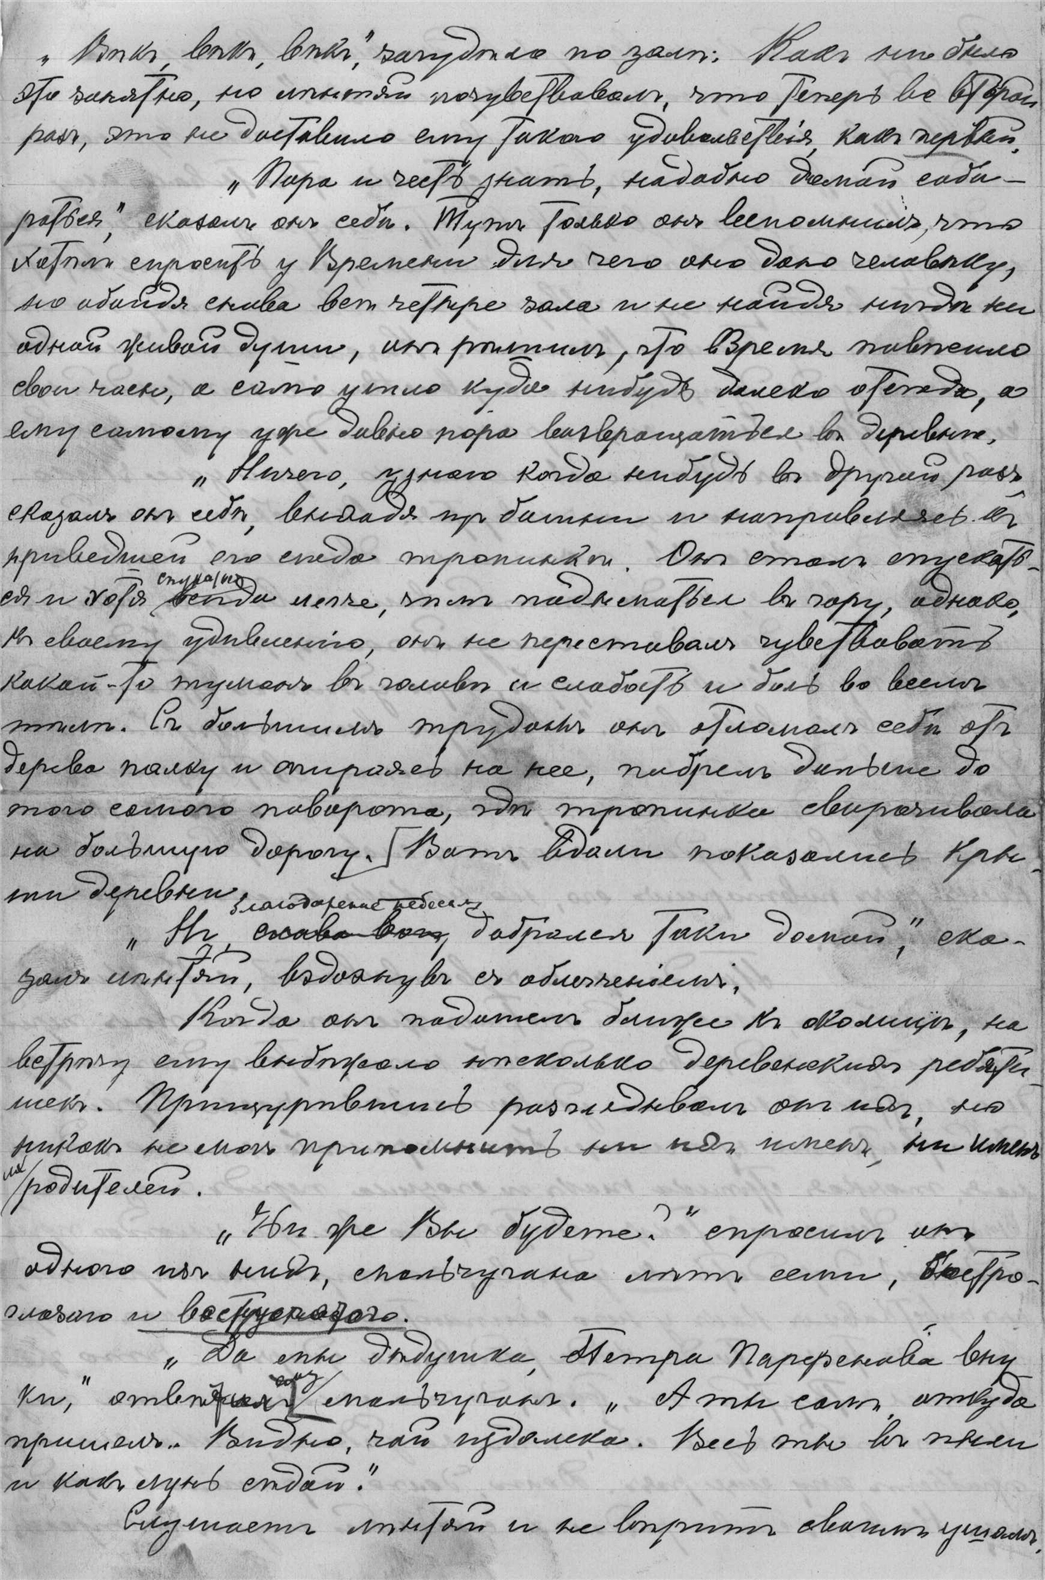 „Вѣкъ, вѣкъ, вѣкъ," загудѣло по залѣ: Какъ ни было
это занятно, но лѣнтяй почувствовалъ, что теперь во второй
разъ, это не доставило ему такого удовольствія, какъ первый.
„Пора и честь знать, надобно домой соби-
раться," сказалъ онъ себѣ. Тутъ только онъ вспомнилъ, что
хотѣлъ спросить у Времени для чего оно дано человѣку,
но обойдя снова всѣ четыре зала и не найдя нигдѣ ни
одной живой души, онъ рѣшилъ, что Время повѣсило
свои часы, а само ушло куда нибудь далеко отсюда, а
ему самому уже давно пора возвращаться въ деревню.
„Ничего, узнаю когда нибудь въ другой разъ
сказалъ онъ себѣ, выходя изъ башни и направляясь къ
приведшей его сюда тропинкѣ. Онъ сталъ спускать-
ся и хотя спускаться всегда легче, чѣмъ подыматься въ гору, однако,
къ своему удивленію, онъ не переставалъ чувствовать
какой-то туманъ въ головѣ и слабость и боль во всемъ
тѣлѣ. Съ большимъ трудомъ онъ отломалъ себѣ отъ
дерева палку и опираясь на нее, побрелъ дальше до
того самого поворота, гдѣ тропинка сворачивала
на большую дорогу. [Вотъ вдали показались кры-
ши деревни.
благодареніе небесамъ
„Ну, слава Богу, добрался таки домой," ска-
залъ лѣнтяй, вздохнувъ съ облегченіемъ.
Когда онъ подошелъ ближе къ околицѣ, на
встрѣчу ему выбѣжало нѣсколько деревенскихъ ребяти-
шекъ. Прищурившись разглядывалъ онъ ихъ, но
никакъ не могъ припомнить ни ихъ именъ, ни именъ
ихъ родителей.
„Чьи же Вы будете?" спросилъ онъ
одного изъ нихъ, мальчугана лѣтъ семи, быстро-
глазаго и востроносаго.
„Да мы дѣдушка, Петра Парфенова вну
ки," отвѣтилъ ему мальчуганъ. „А ты самъ откуда
пришелъ. Видно, чай издалека. Весь ты въ пыли
и какъ лунь сѣдой."
Слушаетъ лѣнтяй и не вѣритъ своимъ ушамъ.